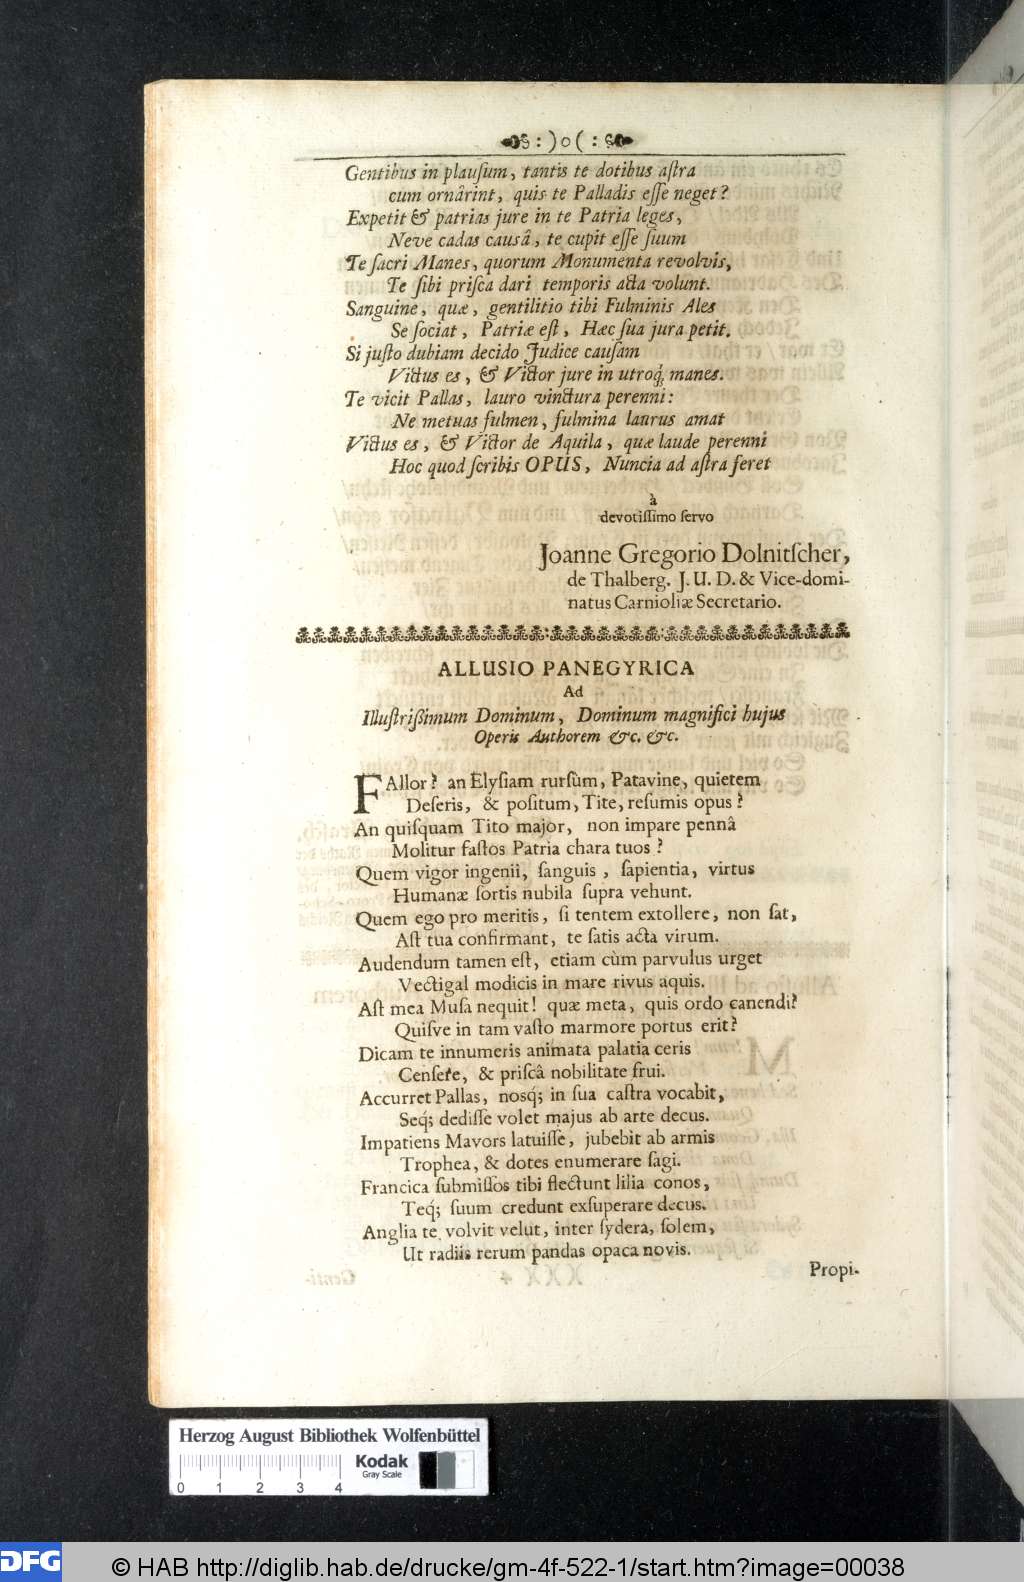 :)o(:
Gentibus in plauſum, tantis te dotibus aſtra
cum ornârint, quis te Palladis eſſe neget?
Expetit & patrias jure in te Patria leges,
Neve cadas causâ, te cupit eſſe ſuum
Te ſacri Manes, quorum Monumenta revolvis,
Te ſibi priſca dari temporis acta volunt.
Sanguine, quæ, gentilitio tibi Fulminis Ales
Se ſociat, Patriæ eſt, Hæc ſua jura petit.
Si juſto dubiam decido Judice cauſam
Victus es, & Victor jure in utroq́; manes.
Te vicit Pallas, lauro vinctura perenni:
Ne metuas fulmen, fulmina laurus amat
Victus es, & Victor de Aquila, quæ laude perenni
Hoc quod ſcribis OPUS, Nuncia ad aſtra feret
à
devotiſſimo ſervo
Joanne Gregorio Dolnitſcher,
de Thalberg. J. U. D. & Vice-domi-
natus Carnioliæ Secretario.
ALLUSIO PANEGYRICA
Ad
Illuſtrißimum Dominum, Dominum magnifici hujus
Operis Authorem &c. &c.
FAllor? an Elyſiam rursùm, Patavine, quietem
Deſeris, & poſitum, Tite, reſumis opus?
An quiſquam Tito major, non impare pennâ
Molitur faſtos Patria chara tuos?
Quem vigor ingenii, ſanguis, ſapientia, virtus
Humanæ ſortis nubila ſupra vehunt.
Quem ego pro meritis, ſi tentem extollere, non ſat,
Aſt tua confirmant, te ſatis acta virum.
Audendum tamen eſt, etiam cùm parvulus urget
Vectigal modicis in mare rivus aquis.
Aſt mea Muſa nequit! quæ meta, quis ordo canendi?
Quiſve in tam vaſto marmore portus erit?
Dicam te innumeris animata palatia ceris
Cenſere, & priſcâ nobilitate frui.
Accurret Pallas, nosq́; in ſua caſtra vocabit,
Seq́; dediſſe volet majus ab arte decus.
Impatiens Mavors latuiſſe, jubebit ab armis
Trophea, & dotes enumerare ſagi.
Francica ſubmiſſos tibi flectunt lilia conos,
Teq́; ſuum credunt exſuperare decus.
Anglia te volvit velut, inter ſydera, ſolem,
Ut radiis rerum pandas opaca novis.
Propi-
Herzog August Bibliothek Wolfenbüttel
Kodak
Gray Scale
0 1 2 3 4
DFG
© HAB http://diglib.hab.de/drucke/gm-4f-522-1/start.htm?image=00038